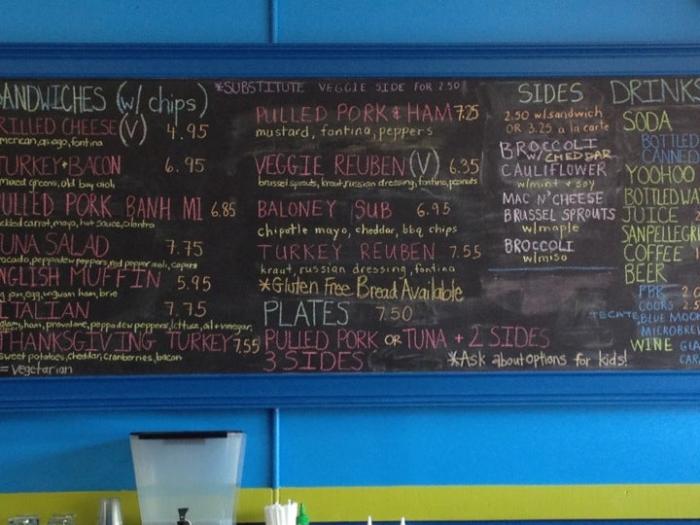 ANDWICHES (w/ chips)
RILLED CHEESE (V) 4.95
merican, asiago, fontina
TURKEY + BACON 6.95
mixed greens, old bay aioli
PULLED PORK BANH MI 6.85
ickled carrot, mayo, hot sauce, cilantro
TUNA SALAD 7.75
ocado, peppadew peppers, red pepper aioli, capers
NGLISH MUFFIN 5.95
ham, brie
ITALIAN 7.75
ham, provolone, peppadew peppers, lettuce, oil + vinegar
THANKSGIVING TURKEY 7.55
sweet potatoes, cheddar, cranberries, bacon
= Vegetarian
*SUBSTITUTE VEGGIE SIDE FOR 2.50
PULLED PORK & HAM 7.25
mustard, fontina, peppers
VEGGIE REUBEN (V) 6.35
brussel sprouts, kraut, russian dressing, fontina, peanuts
BALONEY SUB 6.95
chipotle mayo, cheddar, bbq chips
TURKEY REUBEN 7.55
kraut, russian dressing, fontina
*Gluten Free Bread Available
PLATES 7.50
PULLED PORK OR TUNA + 2 SIDES
3 SIDES
*Ask about options for kids!
SIDES
2.50 w/ sandwich
OR 3.25 a la carte
BROCCOLI
w/ CHEDDAR
CAULIFLOWER
w/ mint + soy
MAC N' CHEESE
BRUSSEL SPROUTS
w/ maple
BROCCOLI
w/ miso
DRINKS
SODA
BOTTLED
CANNED
YOOHOO
BOTTLED WA
JUICE
SANPELLEGRI
COFFEE
BEER
PBR
COORS
TECATE
BLUE MOON
MICROBRE
WINE GLA
CARA